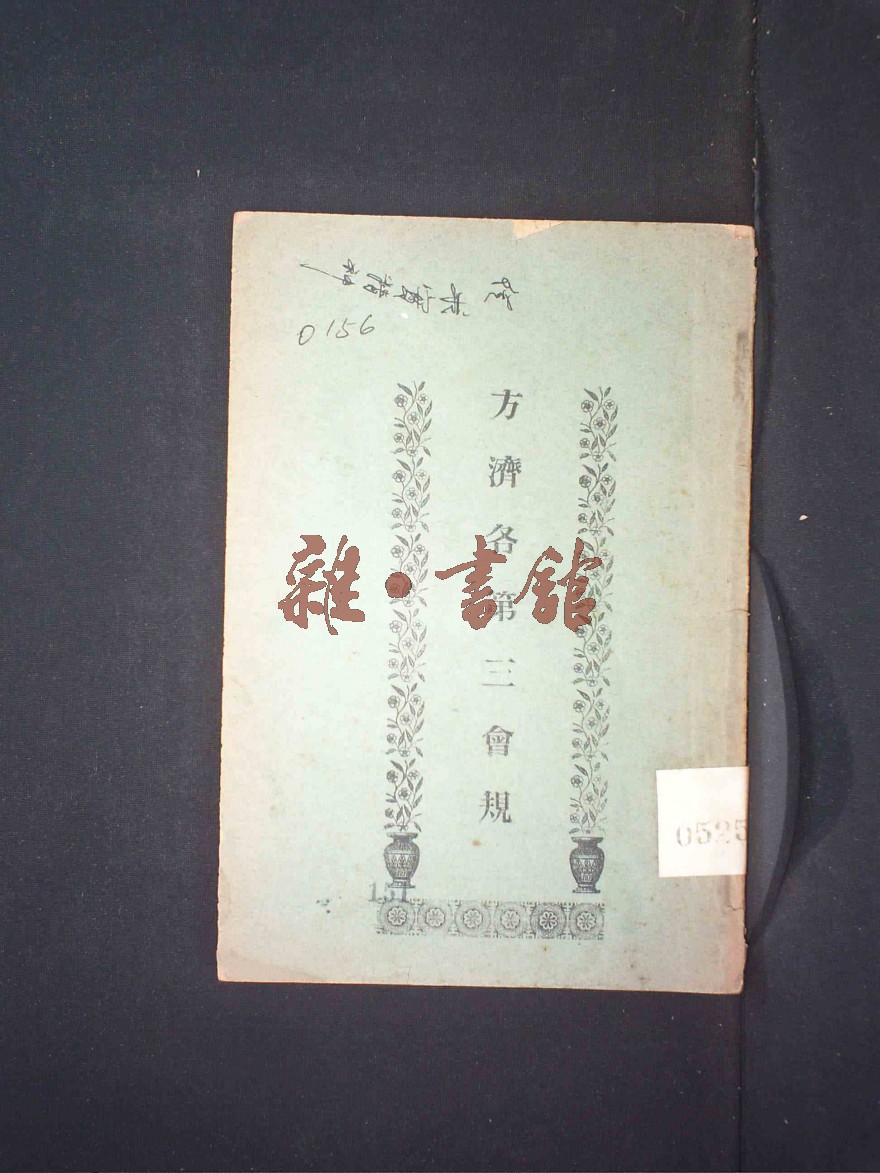 0156
方濟各第三會規
雜·書館
0525
151